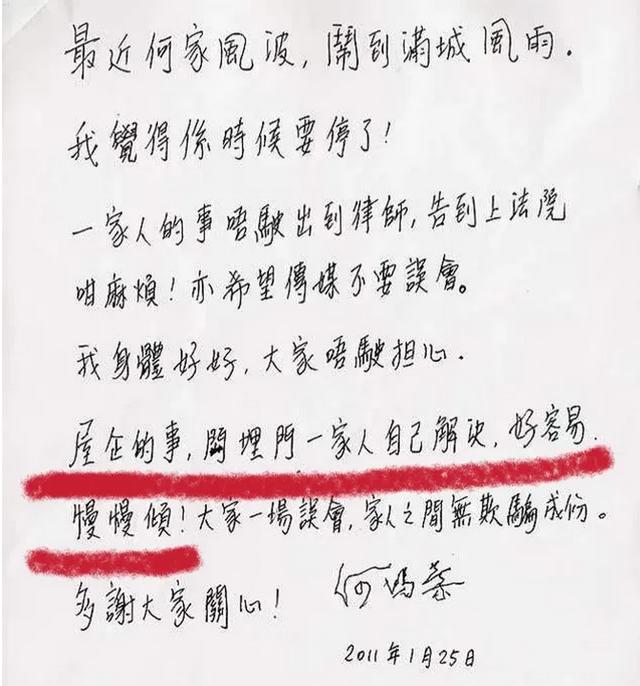 最近何家風波，鬧到滿城風雨．
我覺得係時候要停了！
一家人的事唔駛出到律師，告到上法院
咁麻煩！亦希望傳媒不要誤會。
我身體好好，大家唔駛担心．
屋企的事，關埋門一家人自己解決，好容易．
慢慢傾！大家一場誤會，家人之間無欺騙成份。
多謝大家關心！
何鴻燊
2011年1月25日